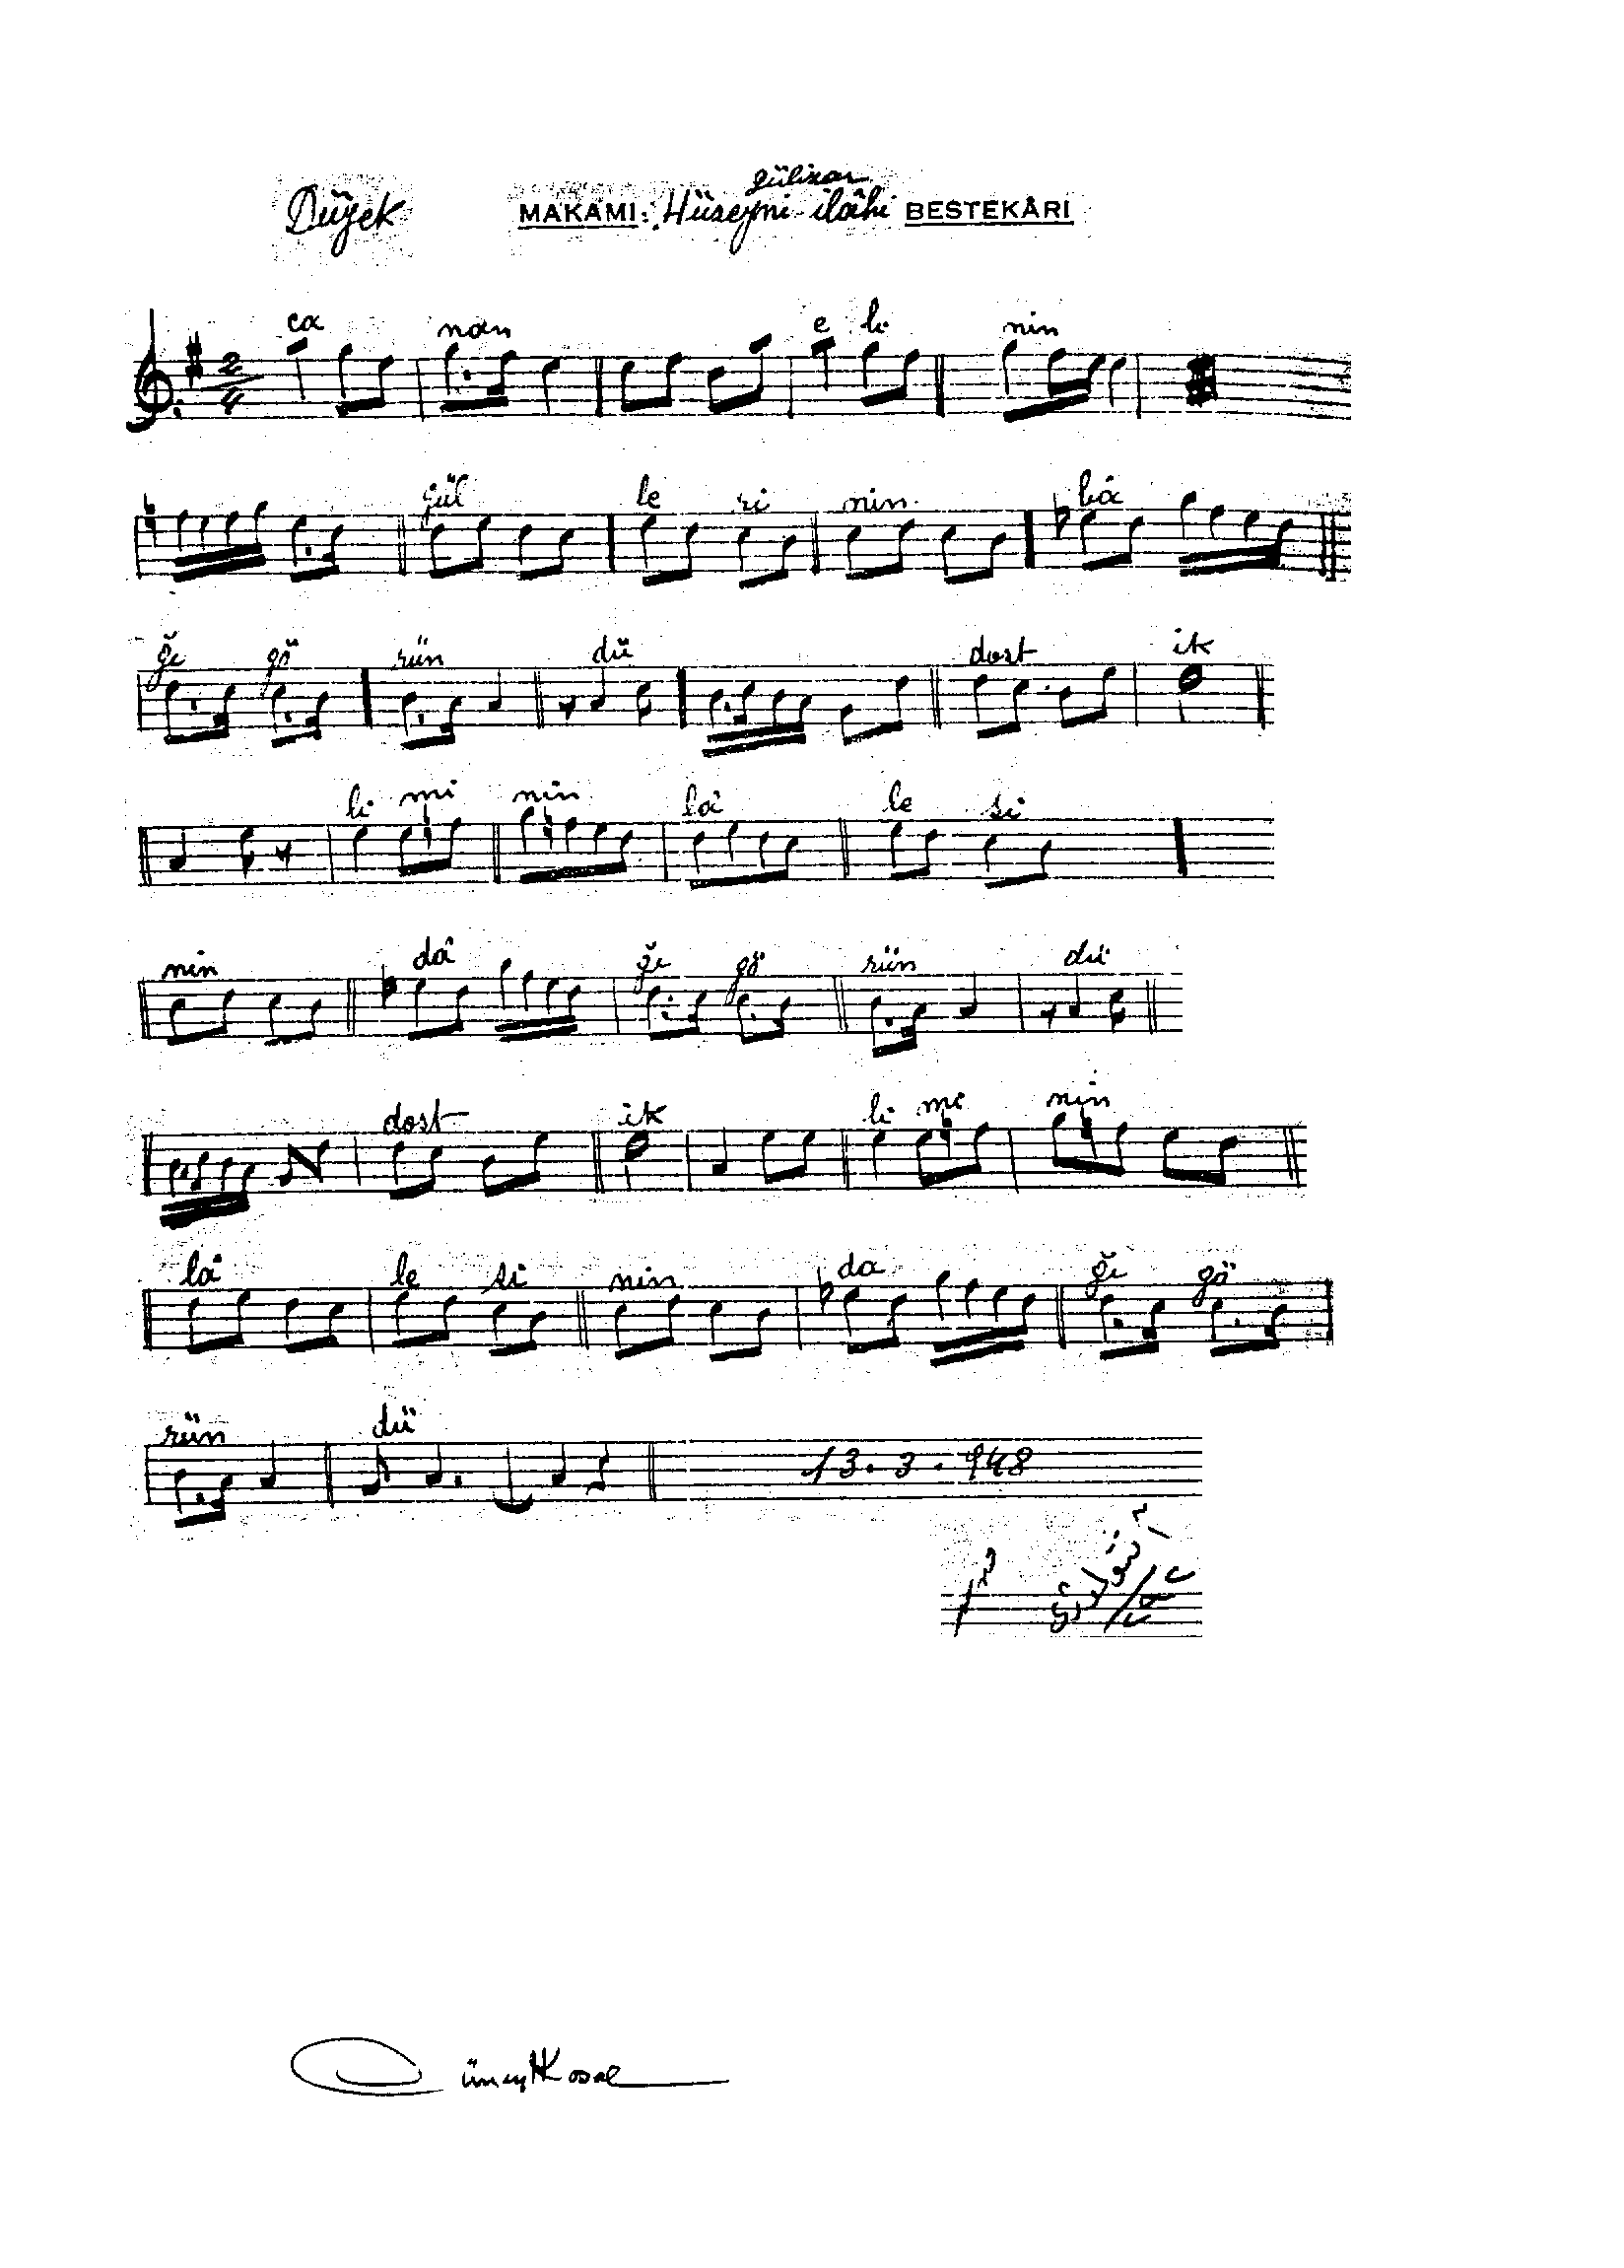 gülizar
Düyek MAKAMI: Hüseyni ilâhi BESTEKÂRI
2/4 ca nan e li nin
gül le ri nin bâ
ği gö rün dü dost ik
li mi nin lâ le si
nin dâ ği gö rün dü
dost ik li mi nin
lâ le si nin da ği gö
rün dü 13.3.948
Cüneyt Kosal